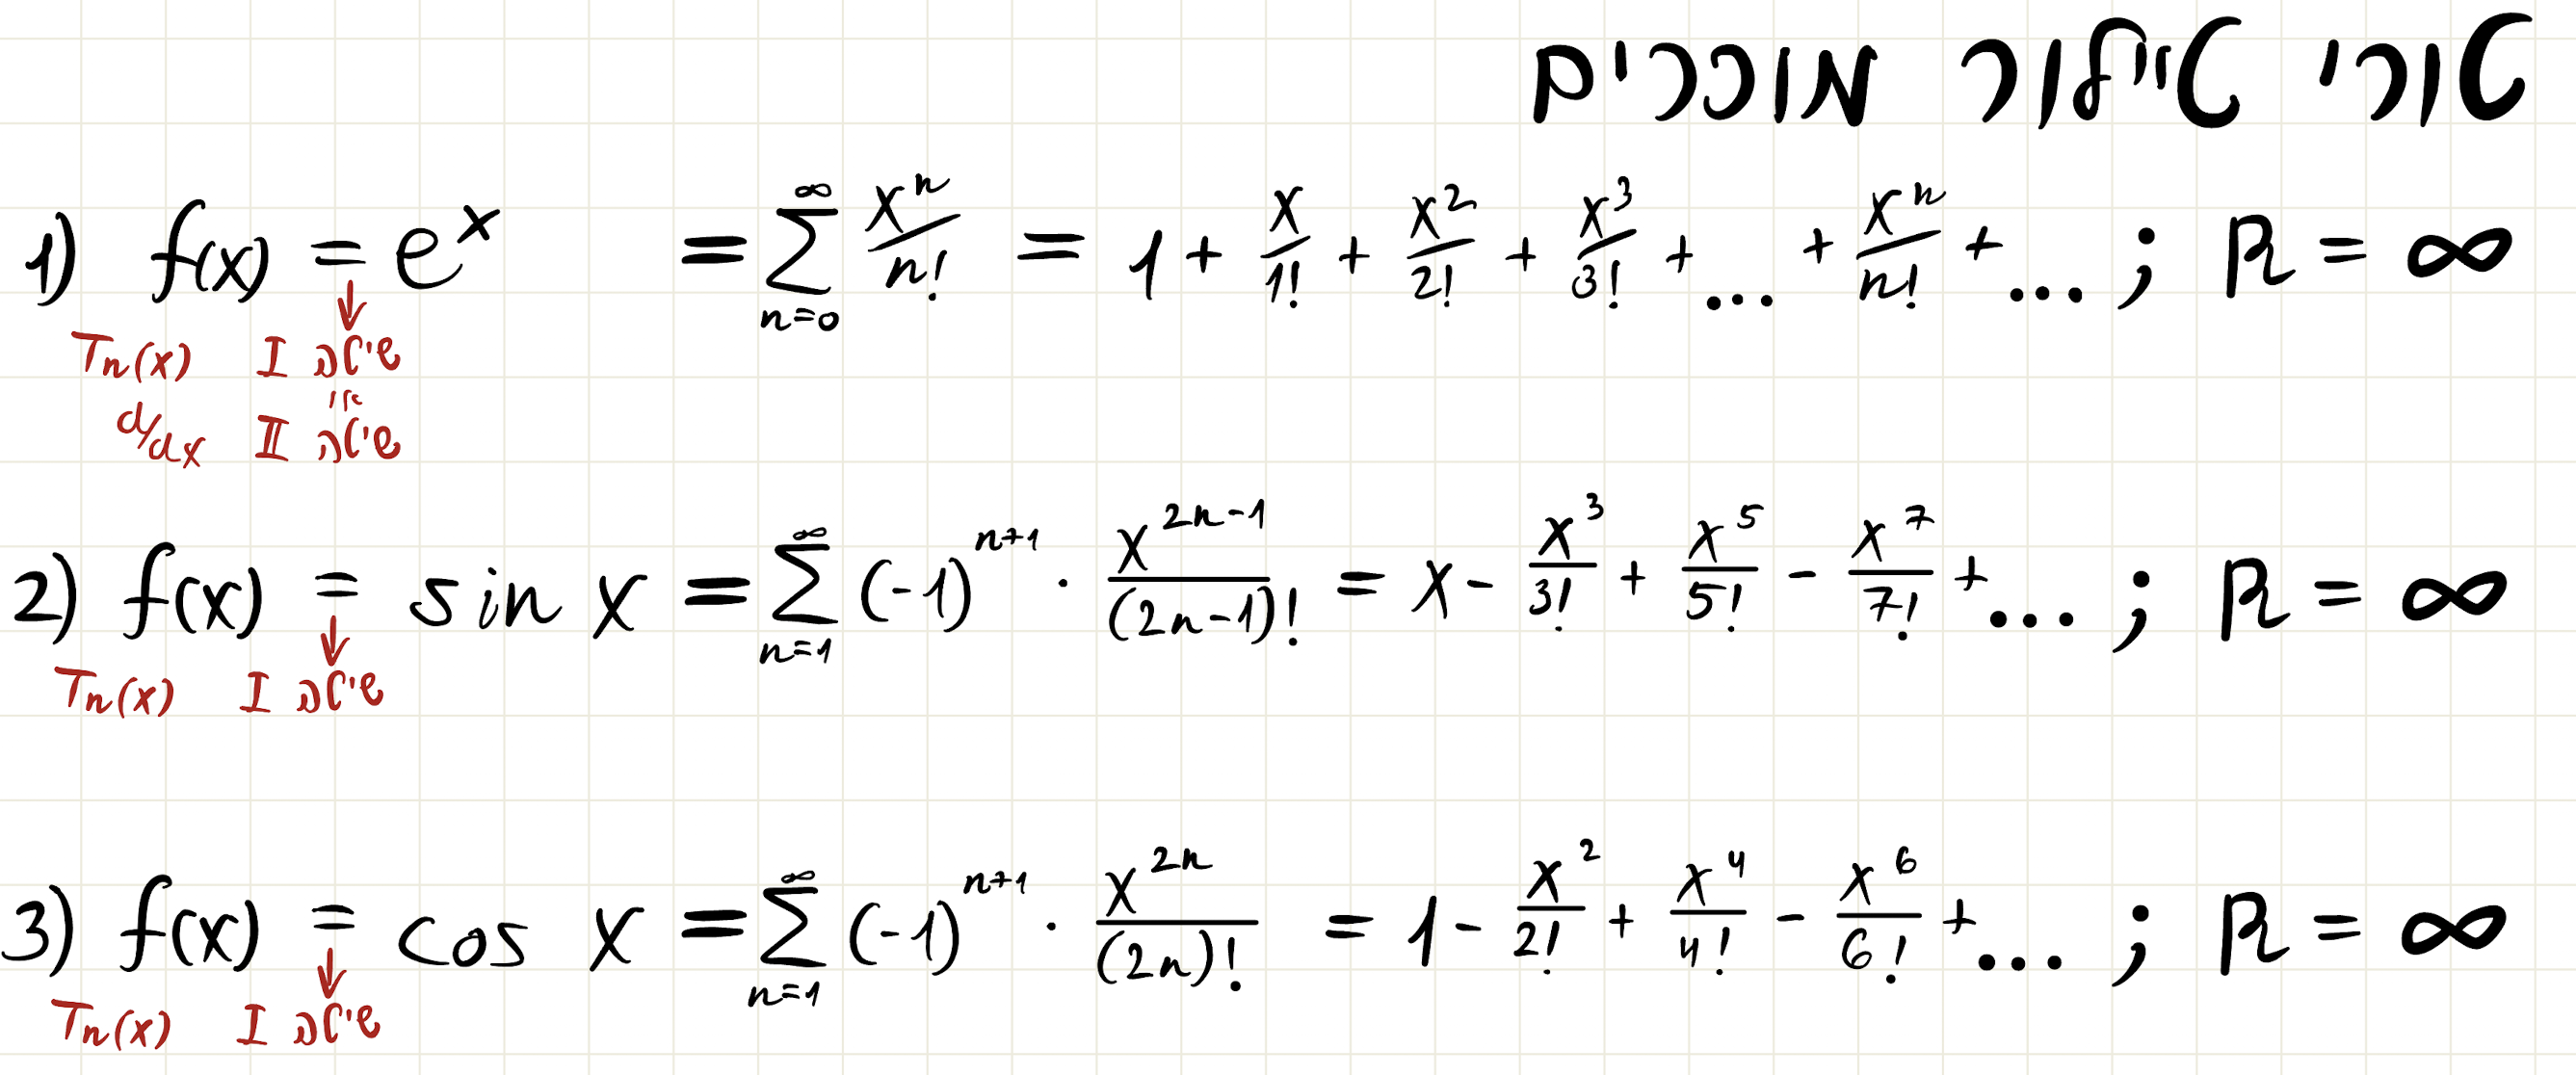 טורי טיילור מוכרים
1) f(x) = e^x = ∑_{n=0}^{∞} x^n/n! = 1 + x/1! + x^2/2! + x^3/3! + ... + x^n/n! + ... ; R = ∞
שיטה I T_n(x)
או
שיטה II d/dx
2) f(x) = sin x = ∑_{n=1}^{∞} (-1)^{n+1} · x^{2n-1}/(2n-1)! = x - x^3/3! + x^5/5! - x^7/7! + ... ; R = ∞
שיטה I T_n(x)
3) f(x) = cos x = ∑_{n=1}^{∞} (-1)^{n+1} · x^{2n}/(2n)! = 1 - x^2/2! + x^4/4! - x^6/6! + ... ; R = ∞
שיטה I T_n(x)